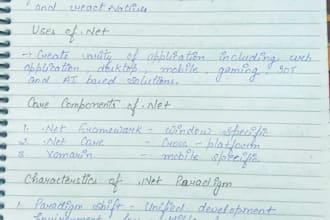 and React Native
Uses of .Net
→ Create varity of application including web
application, desktop, mobile, gaming, IOT
and AI based solutions.
Core Components of .Net
1. .Net Framework - window specific
2. .Net Core - Cross-platform
3. Xamarin - mobile specific
Characteristics of .Net Paradigm
1. Paradigm Shift - Unified development
Environment